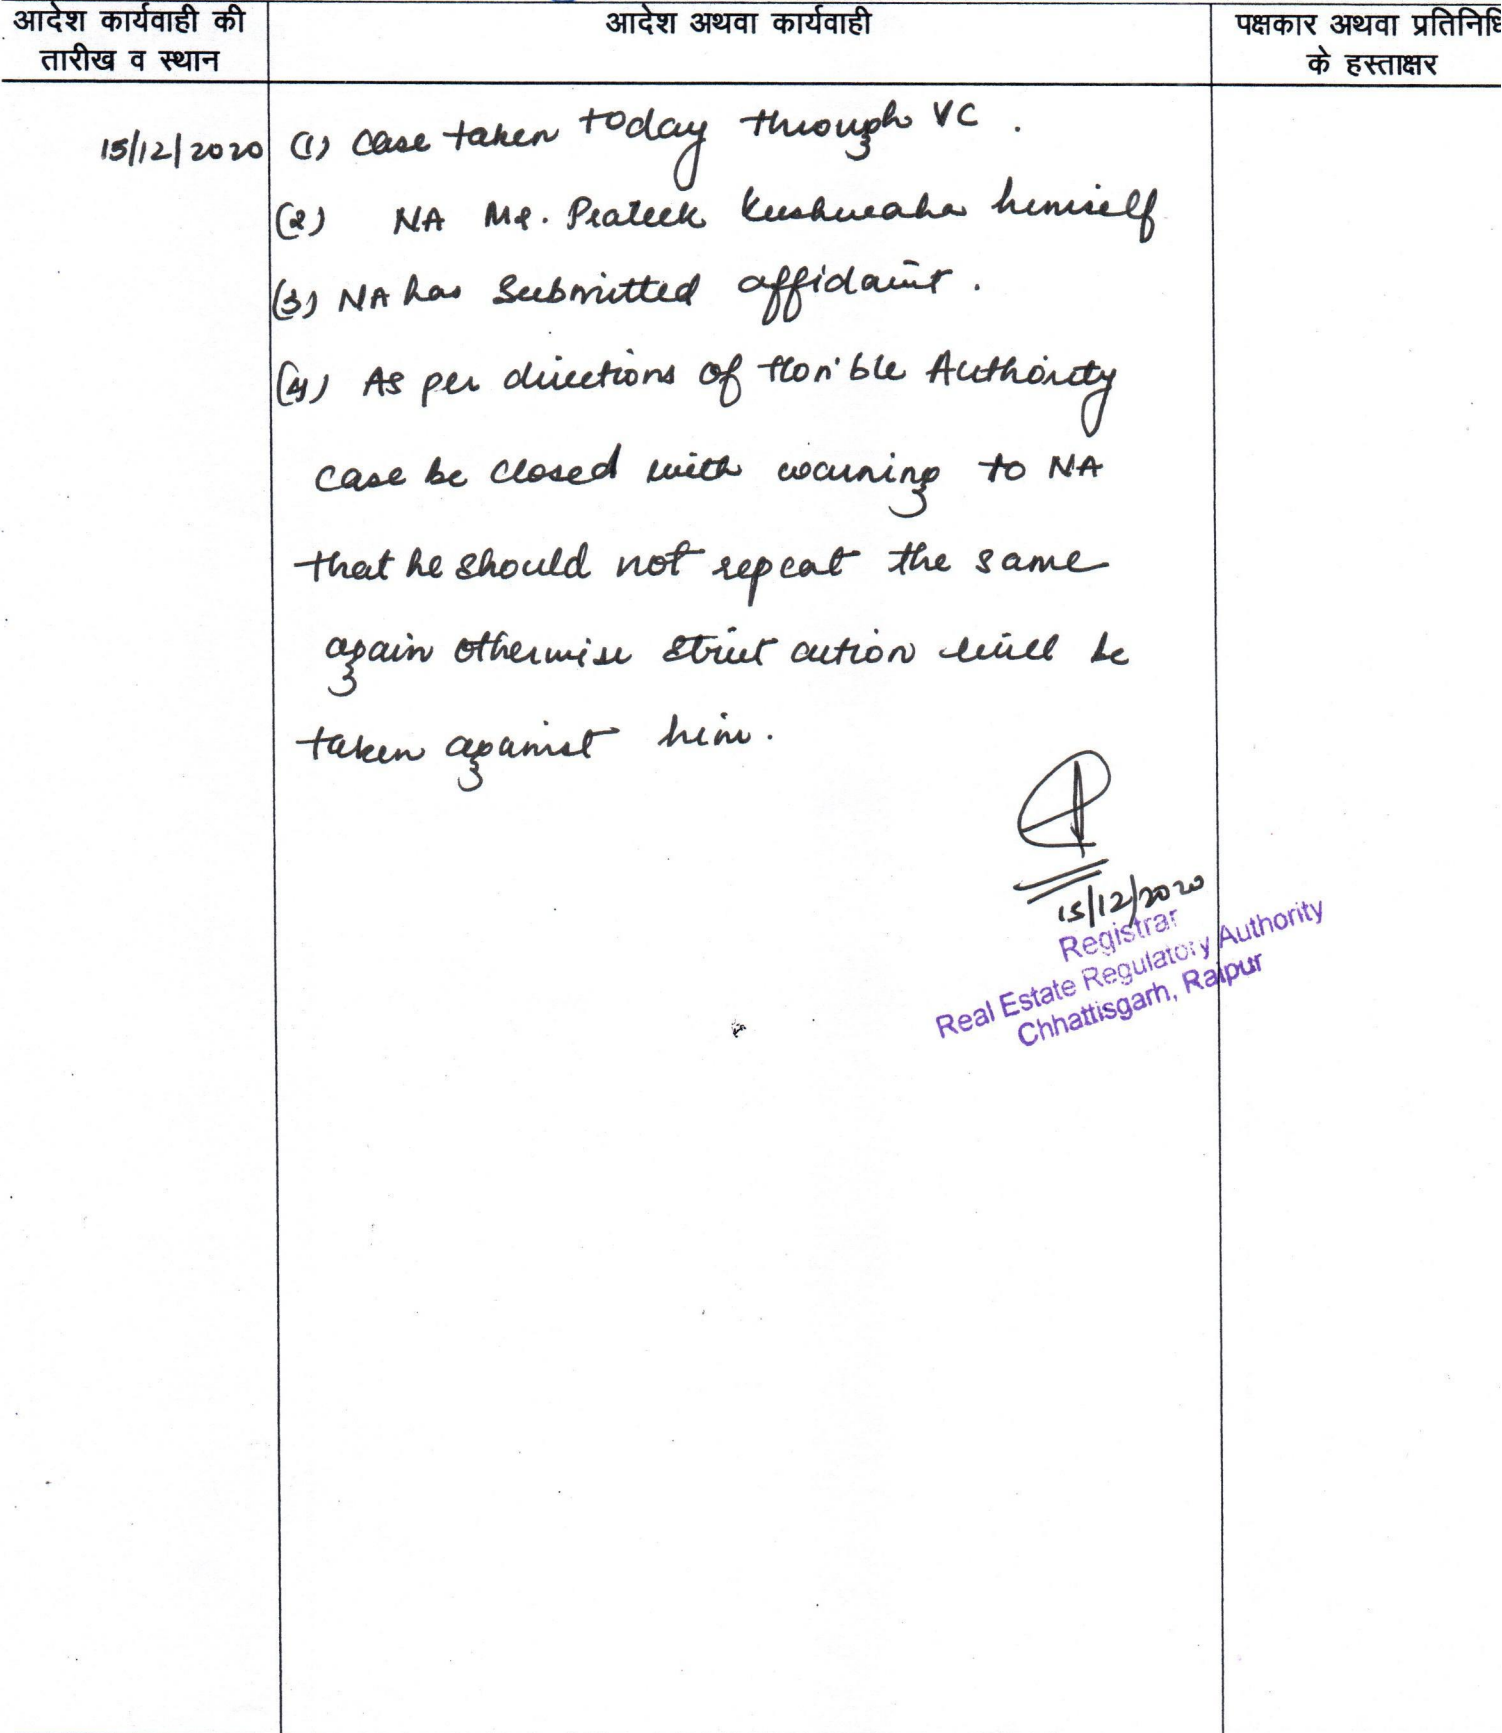 आदेश कार्यवाही की
तारीख व स्थान
आदेश अथवा कार्यवाही
पक्षकार अथवा प्रतिनिधि
के हस्ताक्षर
15/12/2020
(1) Case taken today through VC.
(2) NA Mr. Prateek Kushwaha himself
(3) NA has Submitted affidavit.
(4) As per directions of Hon'ble Authority
case be closed with warning to NA
that he should not repeat the same
again otherwise strict action will be
taken against him.
15/12/2020
Registrar
Real Estate Regulatory Authority
Chhattisgarh, Raipur